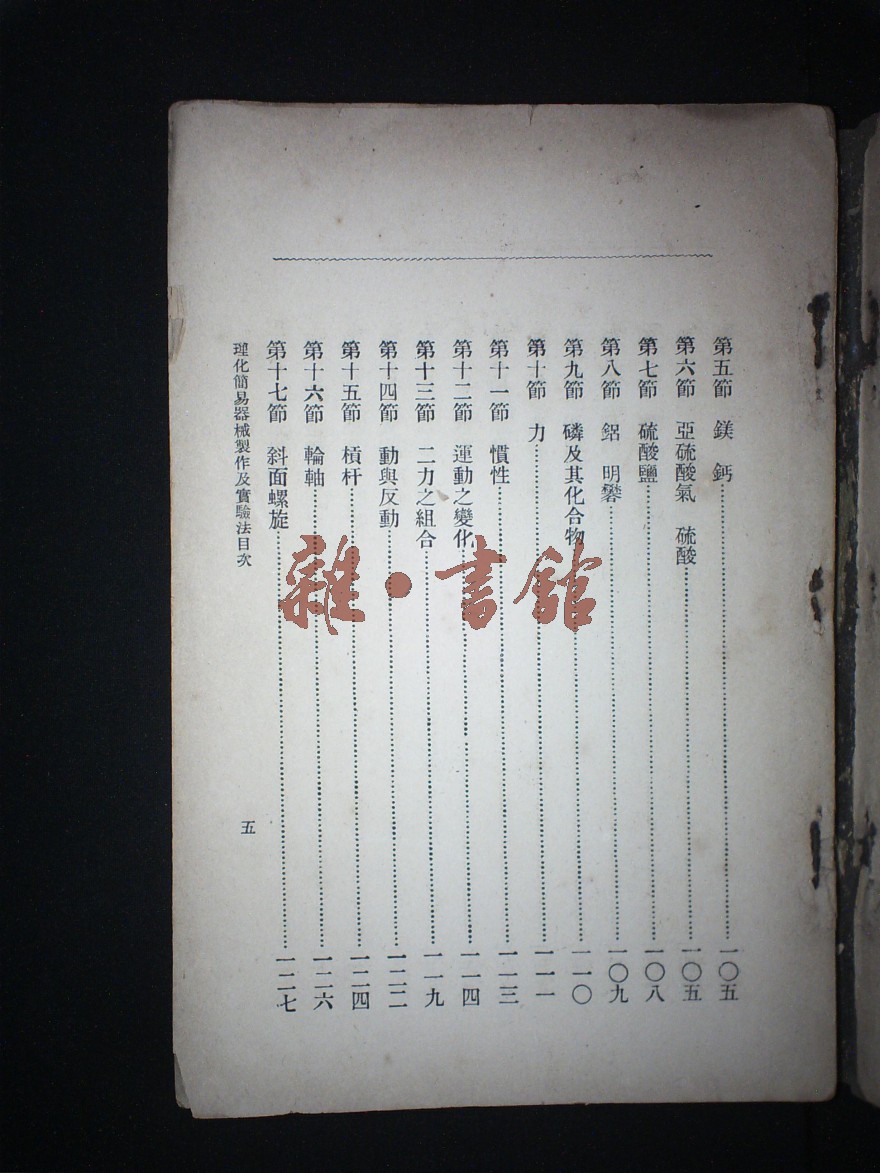 第五節 鎂 鈣……一〇五
第六節 亞硫酸氣 硫酸……一〇五
第七節 硫酸鹽……一〇八
第八節 鋁 明礬……一〇九
第九節 磷及其化合物……一一〇
第十節 力……一一一
第十一節 慣性……一一三
第十二節 運動之變化……一一四
第十三節 二力之組合……一一九
第十四節 動與反動……一二二
第十五節 槓杆……一二四
第十六節 輪軸……一二六
第十七節 斜面螺旋……一二七
理化簡易器械製作及實驗法目次
五
雜·書館